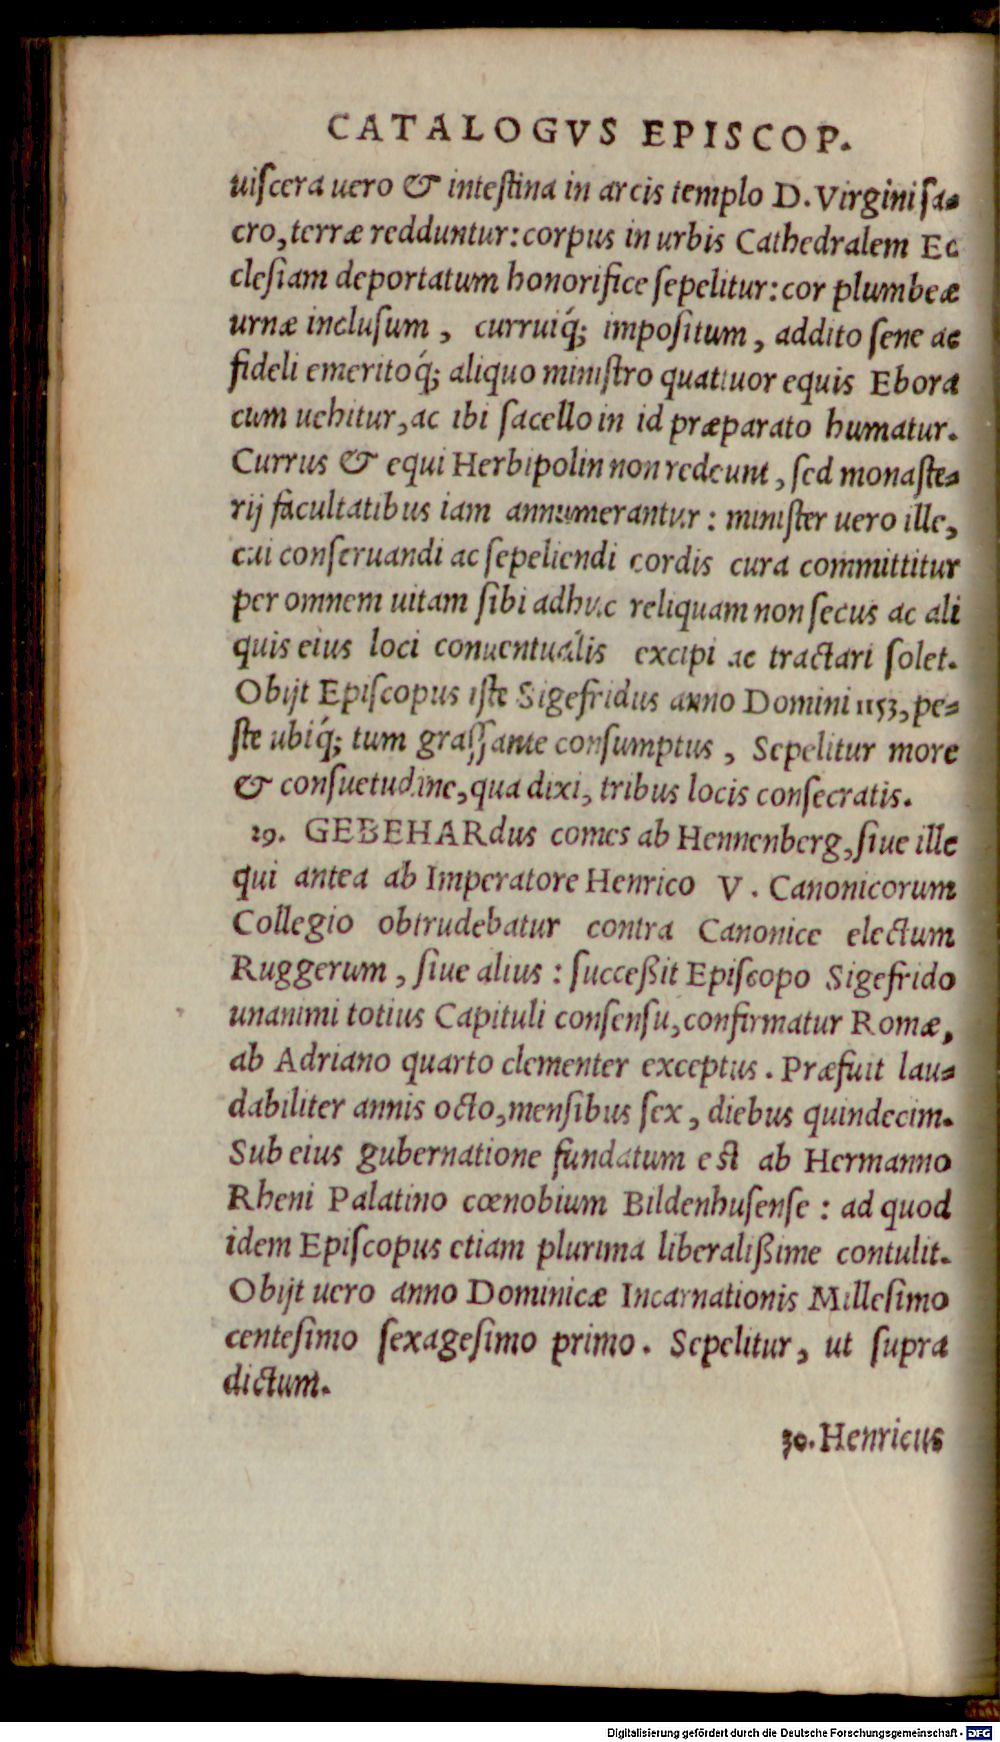 CATALOGVS EPISCOP.
uiſcera uero & inteſtina in arcis templo D. Virgini ſa-
cro, terræ redduntur: corpus in urbis Cathedralem Ec
cleſiam deportatum honorifice ſepelitur: cor plumbeæ
urnæ incluſum, curruiq́; impoſitum, addito ſene ac
fideli emeritoq́; aliquo miniſtro quattuor equis Ebora
cum uehitur, ac ibi ſacello in id præparato humatur.
Currus & equi Herbipolin non redeunt, ſed monaſte-
rij facultatibus iam annumerantur: miniſter uero ille,
cui conſeruandi ac ſepeliendi cordis cura committitur
per omnem uitam ſibi adhuc reliquam non ſecus ac ali
quis eius loci conuentualis excipi ac tractari ſolet.
Obijt Epiſcopus iſte Sigefridus anno Domini 1153, pe-
ſte ubiq́; tum graſſante conſumptus, Sepelitur more
& conſuetudine, qua dixi, tribus locis conſecratis.
29. GEBEHARdus comes ab Hennenberg, ſiue ille
qui antea ab Imperatore Henrico V. Canonicorum
Collegio obtrudebatur contra Canonice electum
Ruggerum, ſiue alius: ſucceßit Epiſcopo Sigefrido
unanimi totius Capituli conſenſu, confirmatur Romæ,
ab Adriano quarto clementer exceptus. Præfuit lau-
dabiliter annis octo, menſibus ſex, diebus quindecim.
Sub eius gubernatione fundatum est ab Hermanno
Rheni Palatino cœnobium Bildenhuſenſe: ad quod
idem Epiſcopus etiam plurima liberalißime contulit.
Obijt uero anno Dominicæ Incarnationis Milleſimo
centeſimo ſexageſimo primo. Sepelitur, ut ſupra
dictum.
30. Henricus
Digitalisierung gefördert durch die Deutsche Forschungsgemeinschaft - DFG